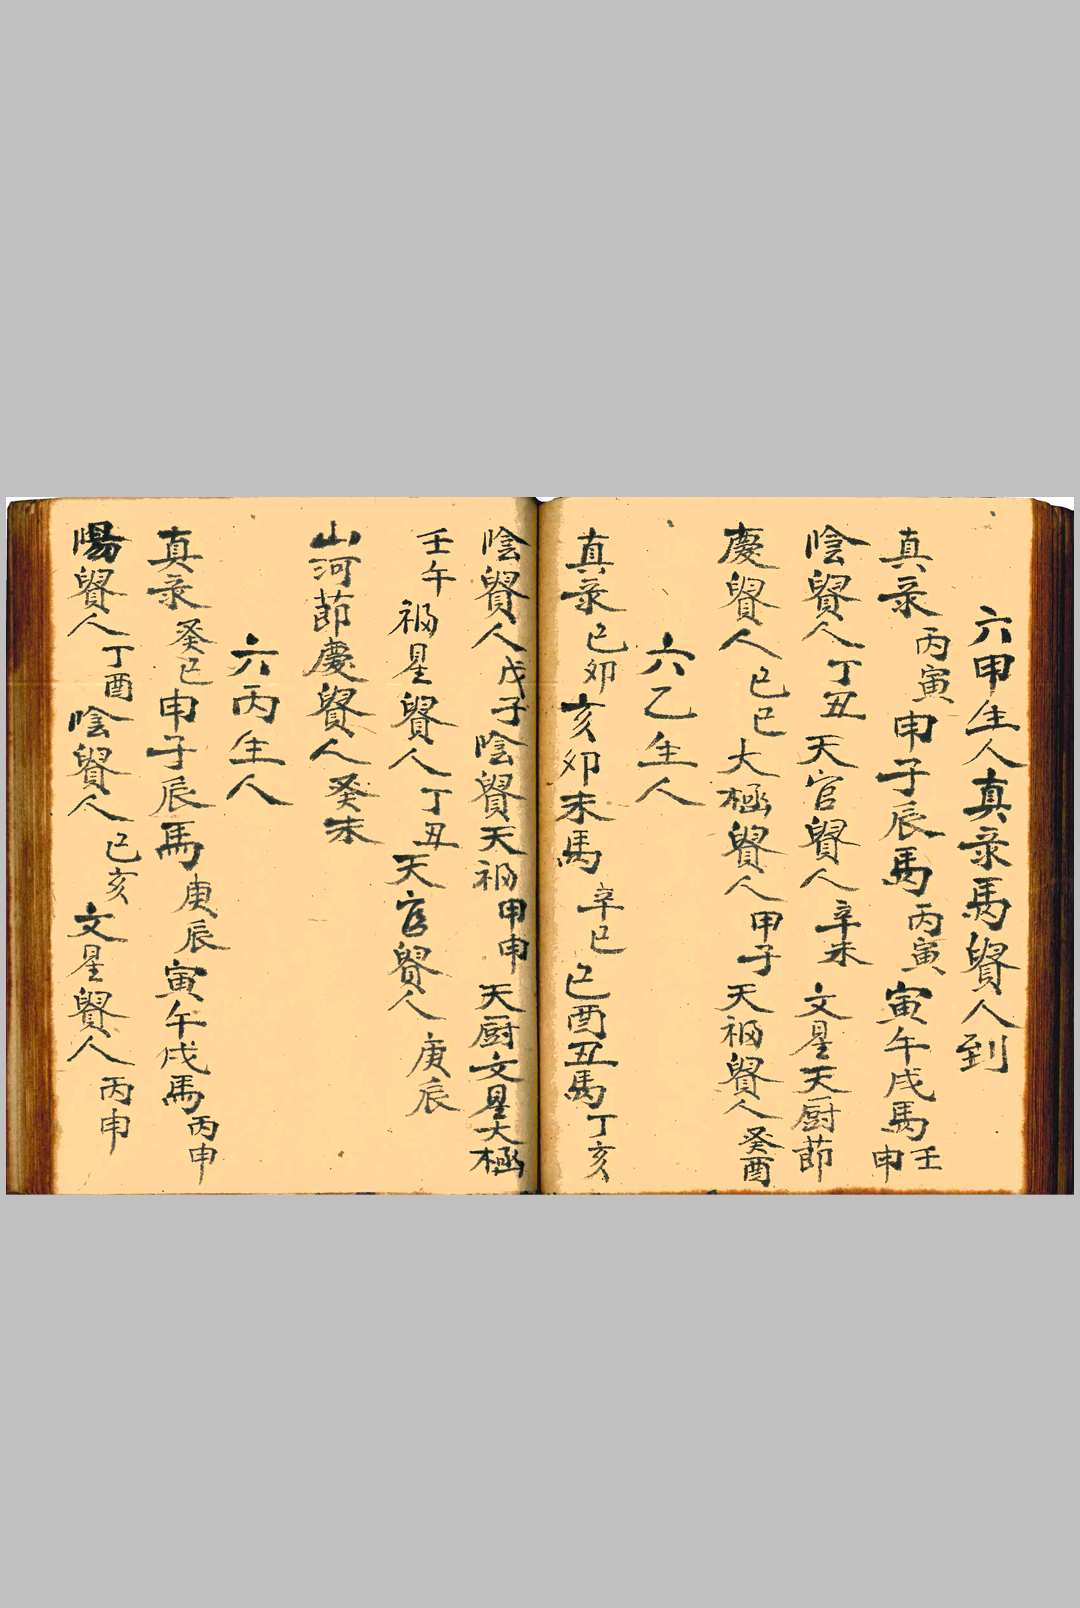 六甲生人真录馬貴人到
真录丙寅申子辰馬丙寅寅午戌馬壬申
陰貴人丁丑天官貴人辛未文星天厨節
慶貴人己巳大極貴人甲子天福貴人癸酉
六乙生人
真录己卯亥卯未馬辛巳巳酉丑馬丁亥
陰貴人戊子陰貴天福甲申天厨文星大極
壬午福星貴人丁丑天官貴人庚辰
山河節慶貴人癸未
六丙生人
真录癸巳申子辰馬庚辰寅午戌馬丙申
陽貴人丁酉陰貴人己亥文星貴人丙申